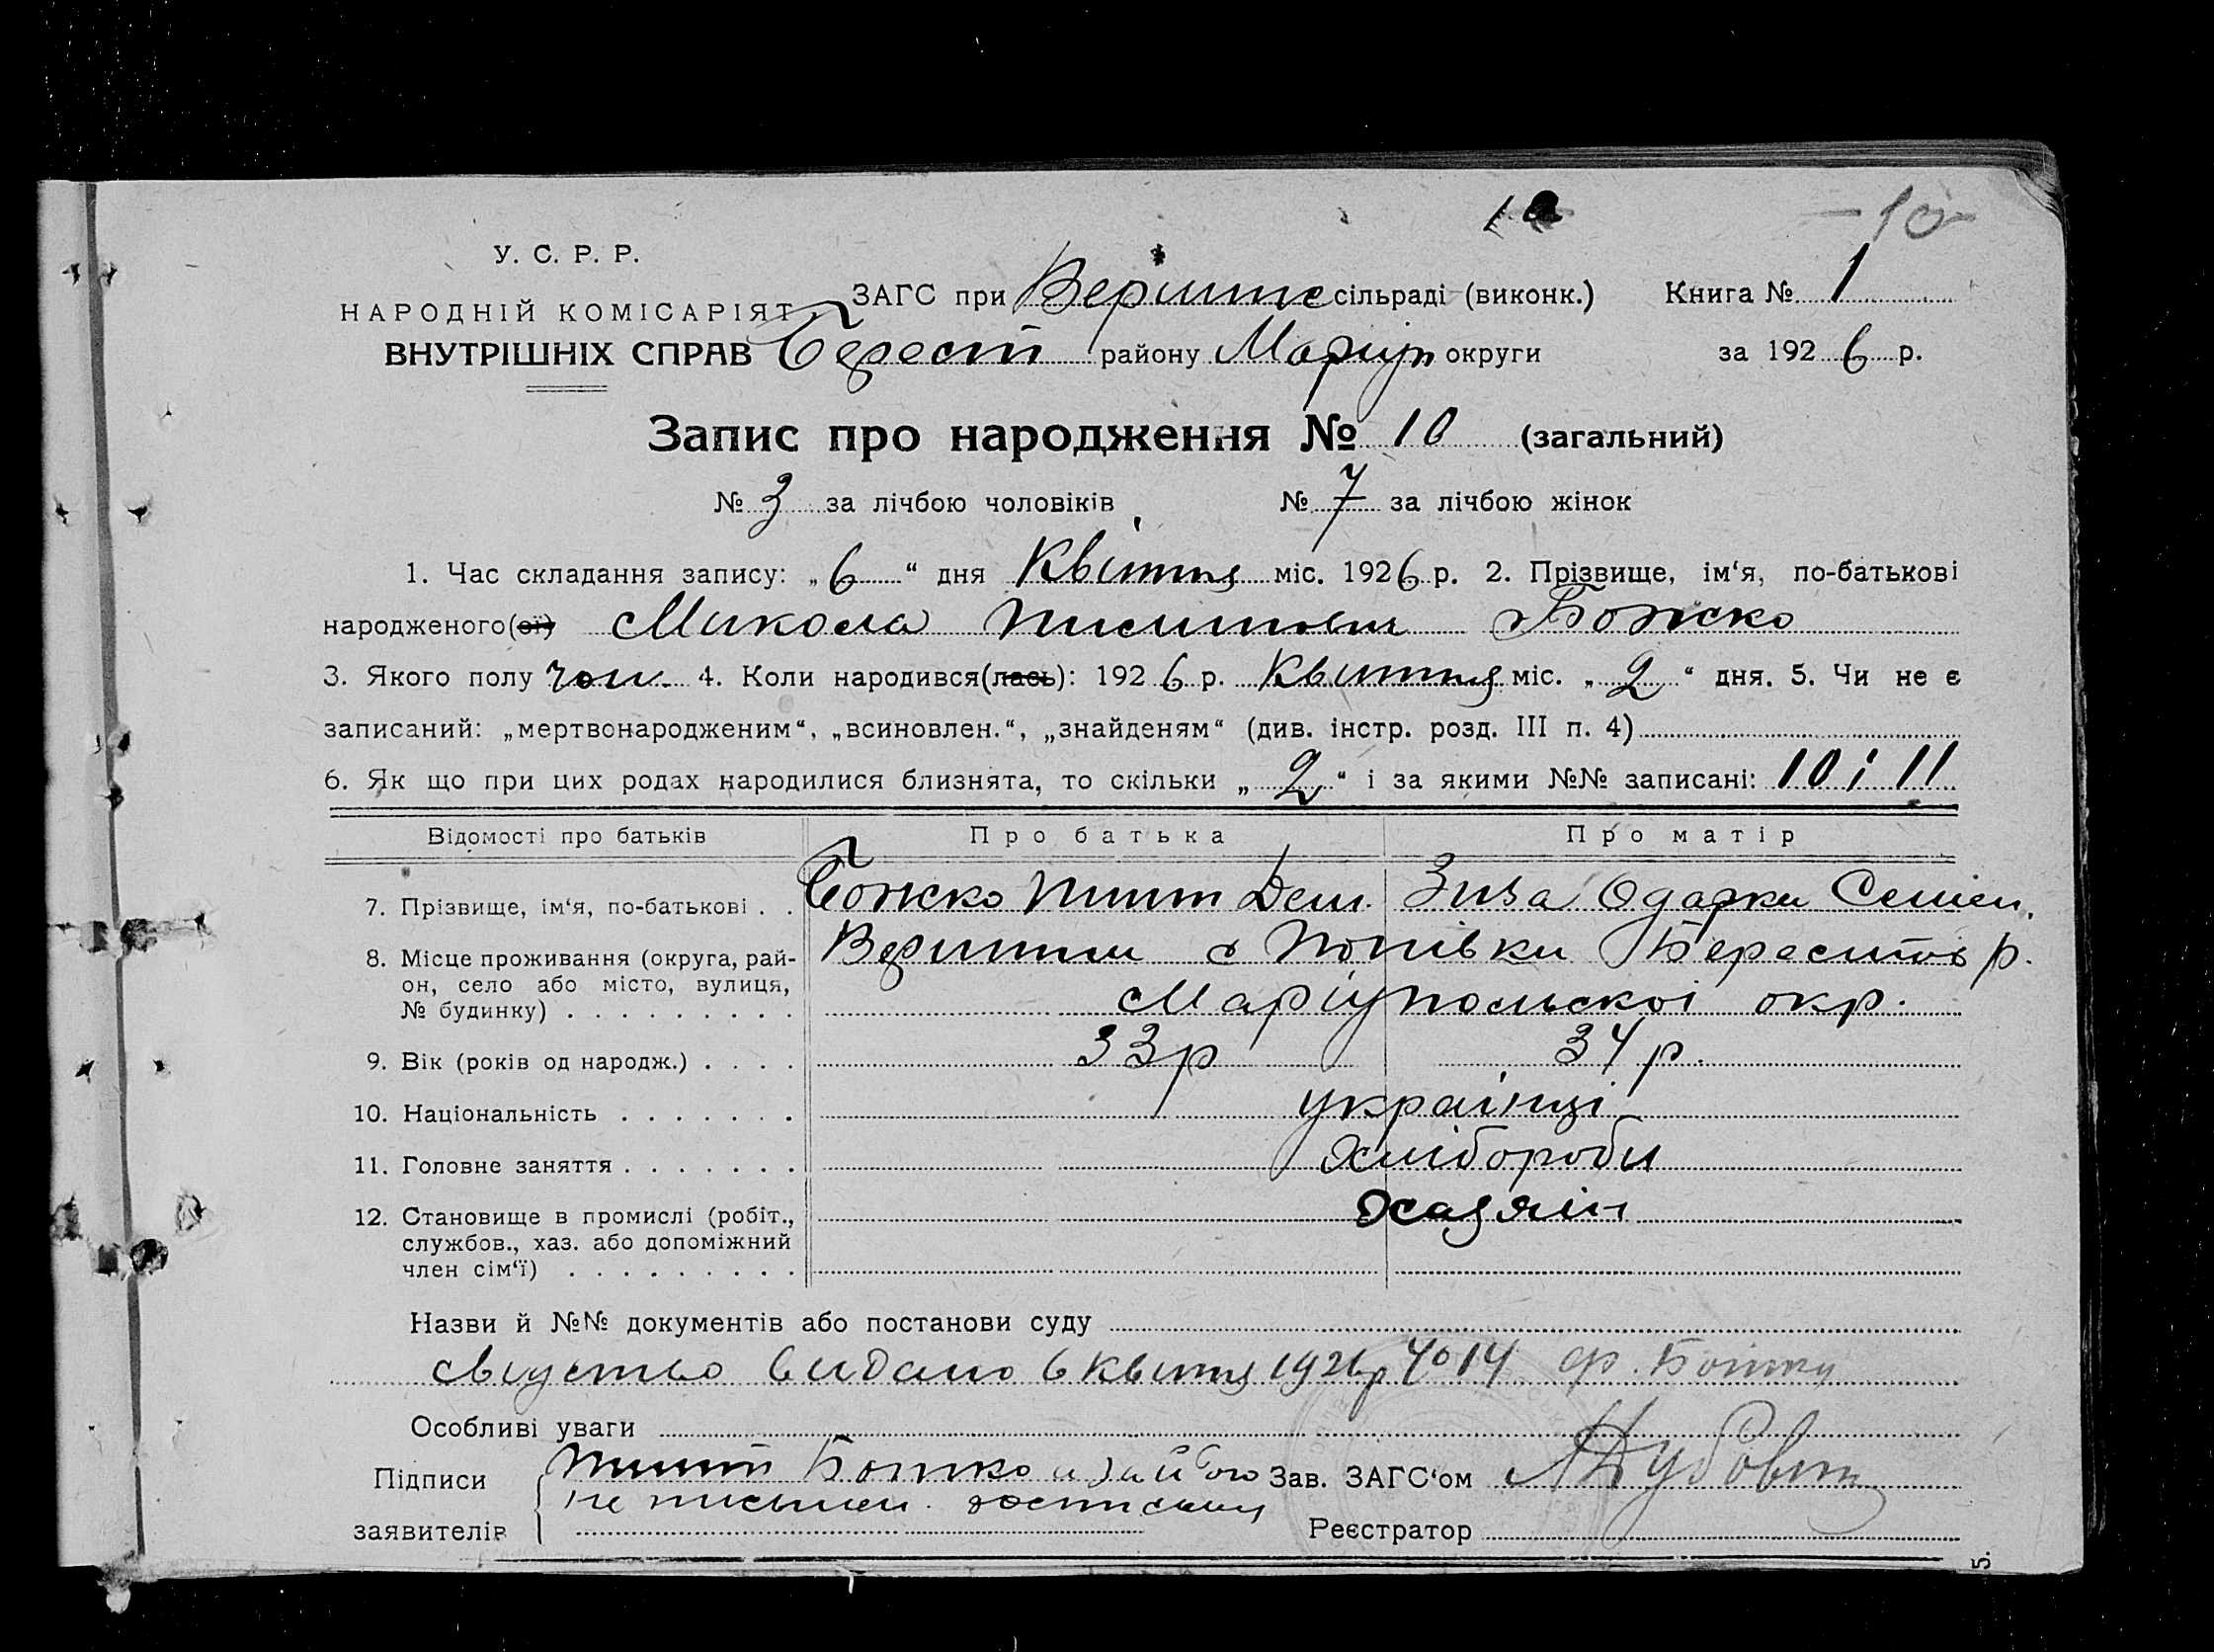 10
10
У. С. Р. Р.
НАРОДНІЙ КОМІСАРІЯТ
ВНУТРІШНІХ СПРАВ
ЗАГС при сільраді (виконк.) Книга № 1
Берест району Маріуп округи за 1926 р.
Запис про народження № 10 (загальний)
№ 3 за лічбою чоловіків № 7 за лічбою жінок
1. Час складання запису: „6“ дня Квітня міс. 1926 р. 2. Прізвище, ім‘я, по-батькові
народженого(ої) Микола Божко
3. Якого полу чол. 4. Коли народився(лась): 1926 р. Квітня міс. „2“ дня. 5. Чи не є
записаний: „мертвонародженим“, „всиновлен.“, „знайденям“ (див. інстр. розд. III п. 4)
6. Як що при цих родах народилися близнята, то скільки „2“ і за якими №№ записані: 10 і 11
Відомості про батьків Про батька Про матір
7. Прізвище, ім‘я, по-батькові . . Божко Пилип Дем. Зиза Одарка Семен.
8. Місце проживання (округа, рай-
он, село або місто, вулиця,
№ будинку) . . . . . . . . .
с Попівки Берестов р.
Маріупольскоі окр.
9. Вік (років од народж.) . . . . 33р 34 р.
10. Національність . . . . . . . українці
11. Головне заняття . . . . . . . Хлібороби
12. Становище в промислі (робіт.,
службов., хаз. або допоміжний
член сім‘ї) . . . . . . . . .
Хазяін
Назви й №№ документів або постанови суду
видано 6 Квітня 1926р № 14
Особливі уваги
Підписи
заявителів
Пилип Божко а за його
не письмен.
Зав. ЗАГС‘ом
Реєстратор
5.